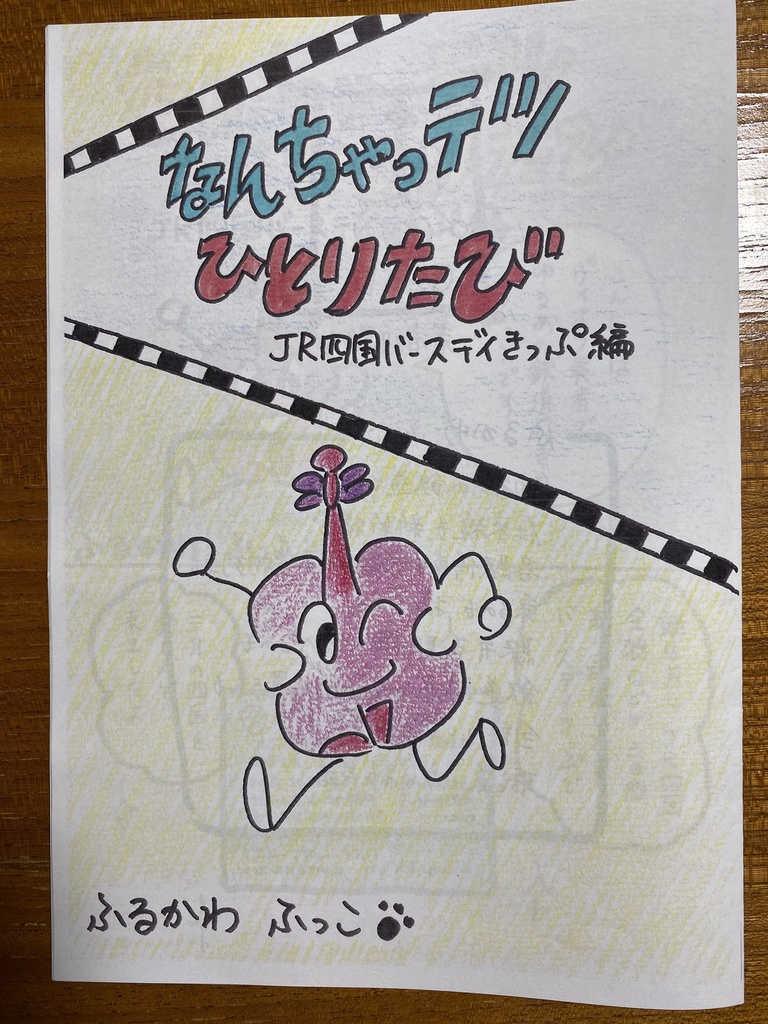 なんちゃっテツ
ひとりたび
JR四国バースデイきっぷ編
ふるかわ ふっこ